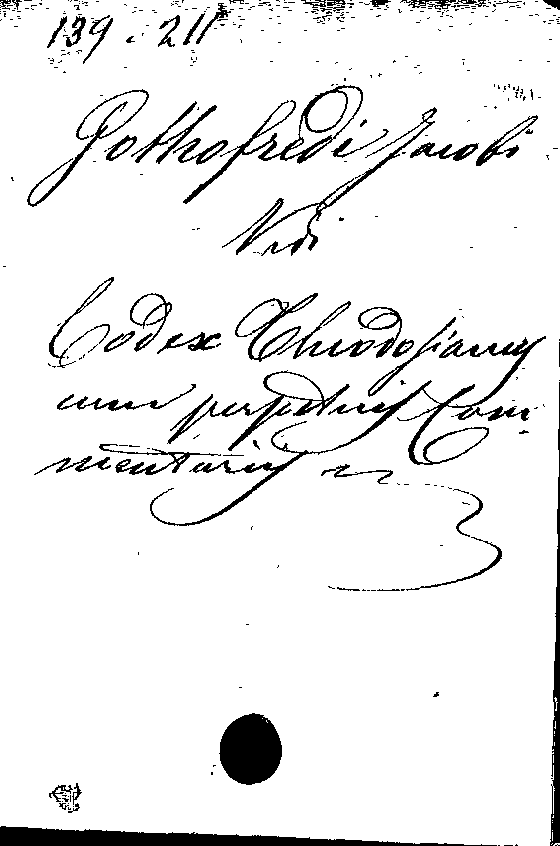 139.211
Gothofredi Jacobi
Vidi
Codex Theodosianus
cum perpetuis Com-
mentariis